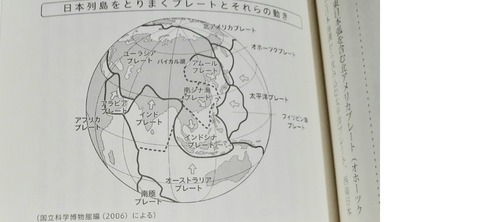 日本列島をとりまくプレートとそれらの動き
北アメリカプレート
オホーツクプレート
ユーラシア
プレート
バイカル湖
アムール
プレート
太平洋プレート
南シナ海
プレート
フィリピン海
プレート
アラビア
プレート
インド
プレート
アフリカ
プレート
インドシナ
プレート
オーストラリア
プレート
南極
プレート
(国立科学博物館編(2006)による)
アメリカプレート(オホーツク